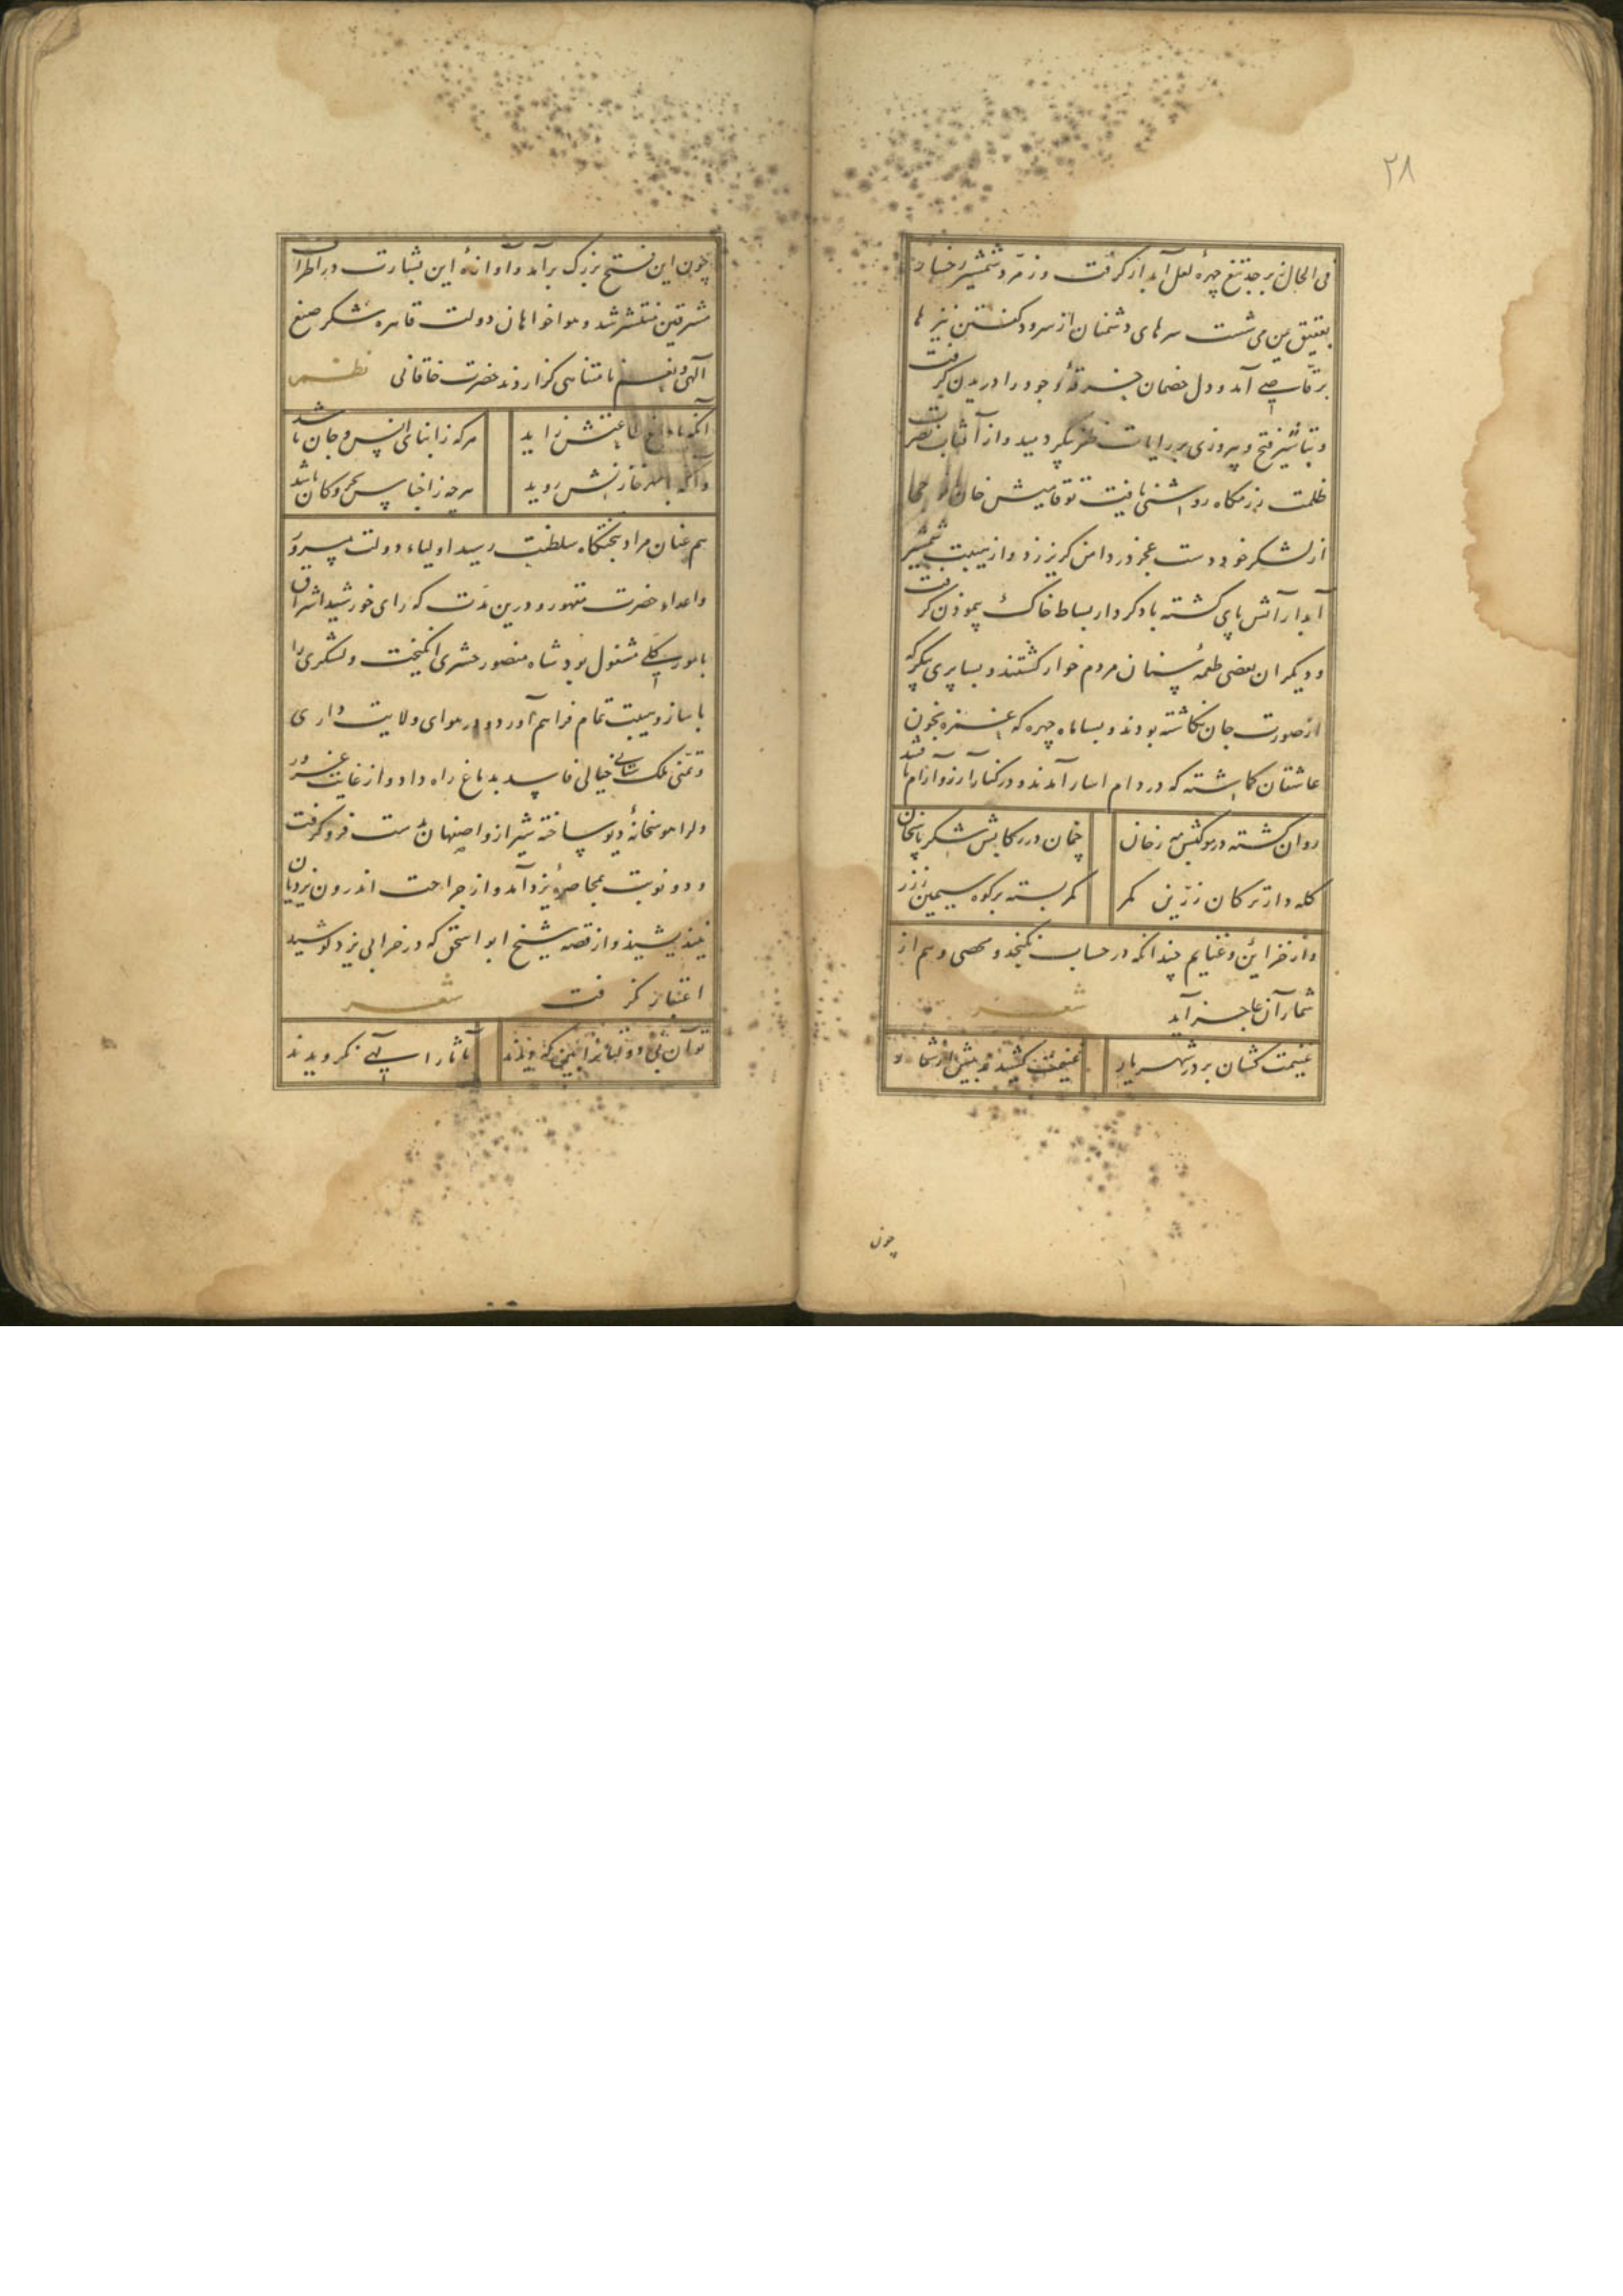 ۲۸
فی الحال زبرجد تیغ چهرهٔ لعل آبدار گرفت و زمرد شمشیر رخسار
بعقیق یمن می شست سرهای دشمنان از سرود گفتن نیزها
برقاصی آمد و دل خصمان خرقهٔ وجود را دریدن گرفت
و تباشیر فتح و پیروزی بر رایات ظفر پیکر دمید و از آفتاب نصرت
ظلمت رزمگاه روشنی یافت توقتامیش خان
از لشکر خود دست عجز در دامن گریز زد و از هیبت شمشیر
آبدار آتش پای گشته بادکردار بساط خاک پیمودن گرفت
و دیگران بعضی طعمهٔ سنان مردم خوار گشتند و بسا پری پیکر که
از صورت جان نگاشته بودند و بسا ماه چهره که غمزه بخون
عاشقان گماشته که در دام اسار آمدند و در کنار آرزو آرام یافتند
روان گشته در موکبش مه رخان
چمان در رکابش شکر پاسخان
کله دار ترکان زرین کمر
کمر بسته بر کوه سیمین ز زر
و از خزاین و غنایم چندانکه در حساب نگنجد و محصی وهم از
شمار آن عاجز آید شعر
غنیمت کشان بر در شهریار
غنیمت کشیدند بیش از شمار
چون
چون این فتح بزرگ برآمد و آوازهٔ این بشارت در اطراف
مشرقین منتشر شد و هواخواهان دولت قاهره شکر صنع
آلهی و نعم نامتناهی گزاردند حضرت خاقانی نظم
آنکه با داغ طاعتش زاید
هر که ز ابنای انس و جان باشد
وآنکه با مهر خازنش روید
هر چه ز اجناس بحر و کان باشد
هم عنان مراد بتختگاه سلطنت رسید اولیاء دولت مسرور
و اعداء حضرت مقهور و درین مدت که رای خورشید اشراق
بامور کلی مشغول بود شاه منصور حشری انگیخت و لشکری را
با ساز و هیبت تمام فراهم آورد و در هوای ولایت داری
و تمنی ملک ستانی خیالی فاسد بدماغ راه داد و از غایت غرور
ولرا هوسخانهٔ دیو ساخته شیراز و اصفهان بدست فرو گرفت
و دو نوبت بمحاصرهٔ یزد آمد و از جراحت اندرون یزدیان
نیندیشید و از قصه شیخ ابو اسحق که در خرابی یزد کوشید
اعتبار نگرفت شعر
بآثار اسپی نگرویدند